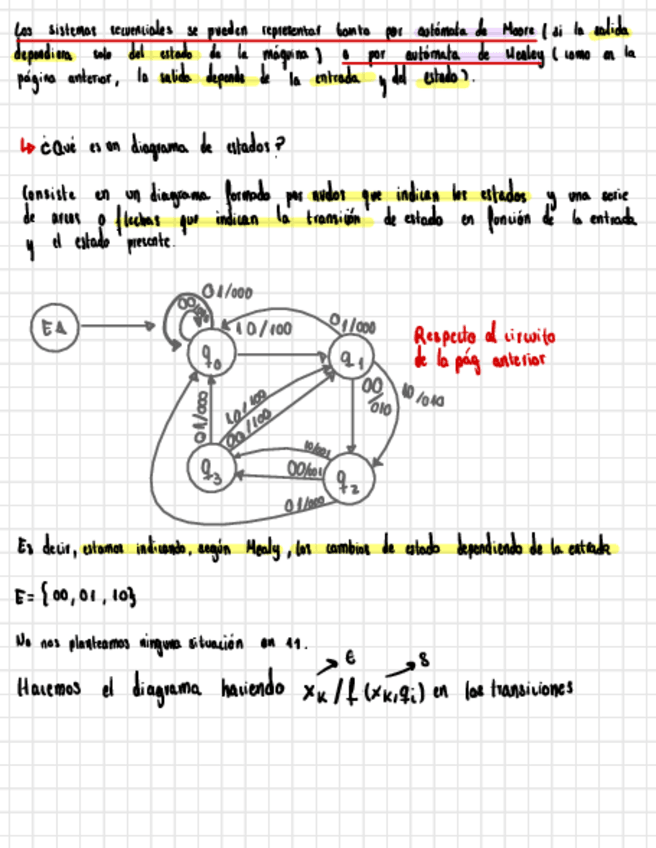 Los sistemas secuenciales se pueden representar tanto por autómata de Moore ( si la salida
dependiera solo del estado de la máquina ) o por autómata de Mealey ( como en la
página anterior, la salida depende de la entrada y del estado ).
↳ ¿Qué es un diagrama de estados ?
Consiste en un diagrama formado por nudos que indican los estados y una serie
de arcos o flechas que indican la transición de estado en función de la entrada
y el estado presente.
01/000
00/
EA
10/100
01/000
q0
q1
Respecto al circuito
de la pág anterior
00/010
10/010
01/000
10/100
00/100
10/001
00/001
q3
q2
01/000
Es decir, estamos indicando, según Mealy , los cambios de estado dependiendo de la entrada
E = { 00, 01 , 10}
No nos planteamos ninguna situación en 11.
E
S
Hacemos el diagrama haciendo xK / f (xK, qi) en las transiciones